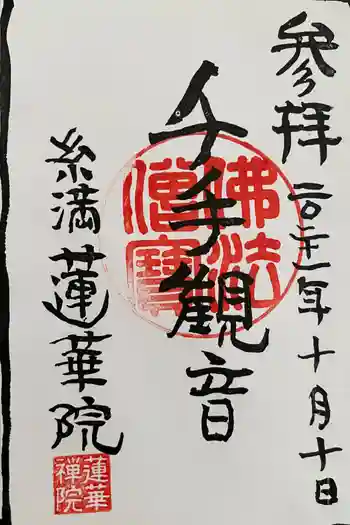 参拜
二〇二一年十月十日
千手観音
佛法僧寶
糸満
蓮華院
蓮華禅院